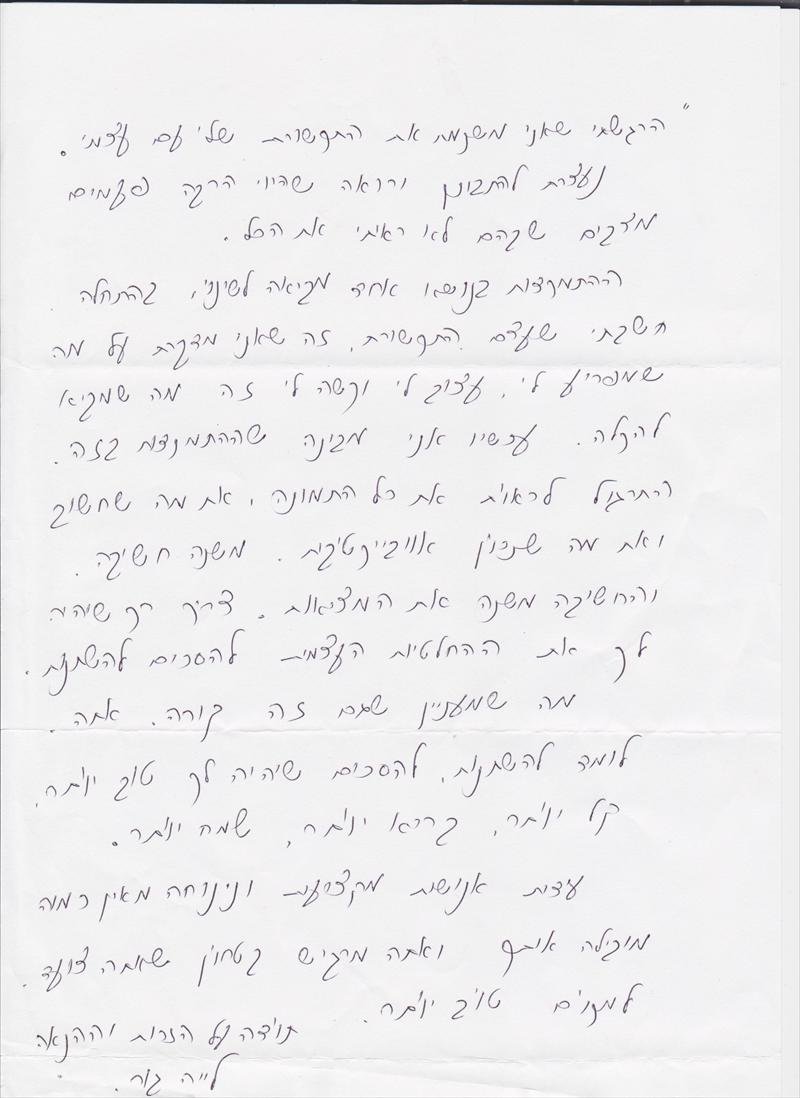 "הרגשתי שאני משנמת את התקשורת שלי עם עצמי.
נעצרת להתבונן ורואה שהיווי הרבה פעמים
מצבים שבהם לא ראיתי את הכל.
ההתמקדות בנושא אחד מביאה לשינוי, בהתחלה
חשבתי שעצם התקשורת, זה שאני מדברת על מה
שמפריע לי, עצוב לי וקשה לי זה מה שמביא
להקלה. עכשיו אני מבינה שההתמקדות בזה.
התרגול לראות את כל התמונה, את מה שחשוב
ואת מה שנכון אובייקטיבית. משנה חשיבה.
והחשיבה משנה את המציאות. צריך רק שיהיה
לך את ההחלטיות העצמית להסכים להשתנות.
מה שמעניין שגם זה קורה. אתה.
לומד להשתנות, להסכים שיהיה לך טוב יותר,
קל יותר, בריא יותר, שמח יותר.
עדית אנושית מקצועית ונינוחה מאין כמוה
מובילה אותך ואתה מרגיש בטחון שאתה צועד.
למקום טוב יותר.
תודה על הזכות וההנאה
לייה גור.